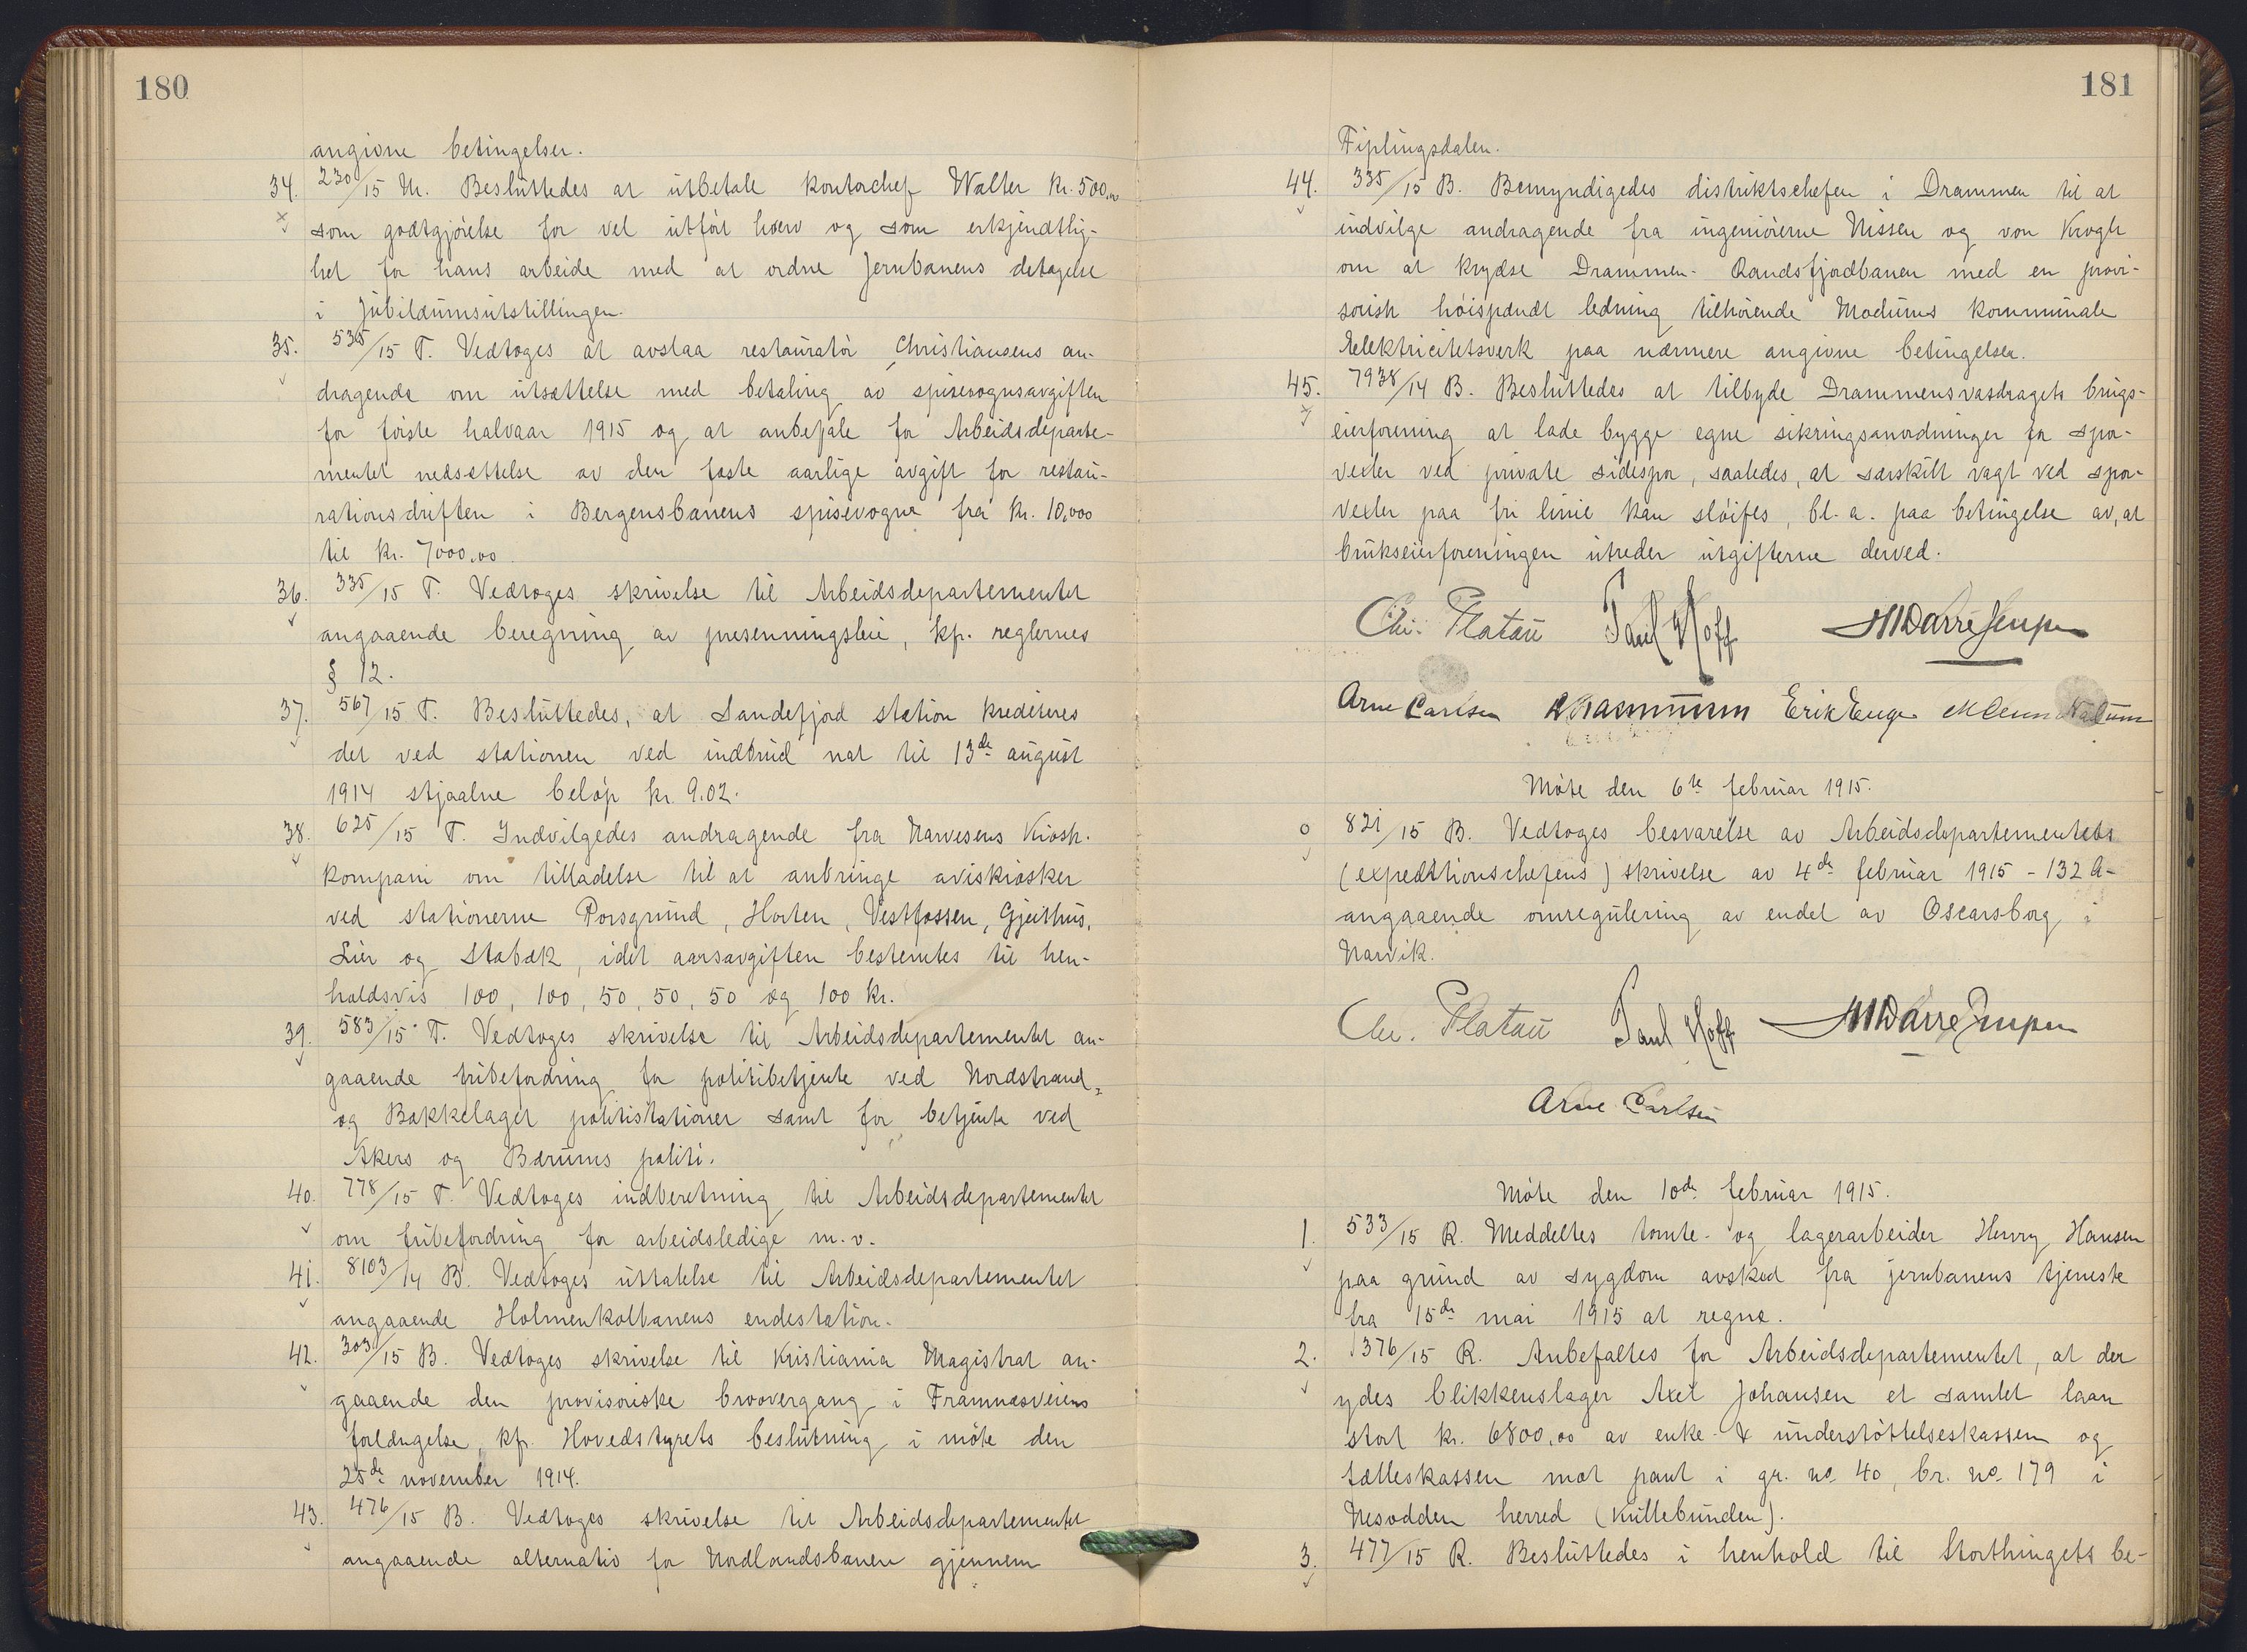 180
angivne betingelser.
34. 230/15 M. Besluttedes at utbetale kontorchef Walter kr. 500,00
som godtgjørelse for vel utført hverv og som erkjendtlig-
het for hans arbeide med at ordne Jernbanens detagelse
i Jubilæumsutstillingen.
35. 535/15 T. Vedtoges at avslaa restauratør Christiansens an-
dragende om utsættelse med betaling av spisevognsavgiften
for første halvaar 1915 og at anbefale for Arbeidsdeparte-
mentet nedsættelse av den faste aarlige avgift for restau-
rationsdriften i Bergensbanens spisevogne fra kr. 10,000
til kr. 7000,00
36. 335/15 T. Vedtoges skrivelse til Arbeidsdepartementet
angaaende beregning av presenningsleie, kfr. reglernes
§ 12.
37. 567/15 T. Besluttedes, at Sandefjord station krediteres
det ved stationen ved indbrud nat til 13de august
1914 stjaalne beløp kr. 9.02.
38. 625/15 T. Indvilgedes andragende fra Narvesens Kiosk-
kompani om tilladelse til at anbringe aviskiosker
ved stationerne Porsgrund, Horten, Vestfossen, Gjeithus,
Lier og Stabæk, idet aarsavgiften bestemtes til hen-
holdsvis 100, 100, 50, 50, 50 og 100 kr.
39. 583/15 T. Vedtoges skrivelse til Arbeidsdepartementet an-
gaaende fribefordring for politibetjente ved Nordstrand-
og Bækkelaget politistationer samt for betjente ved
Akers og Bærums politi.
40. 778/15 T. Vedtoges indberetning til Arbeidsdepartementet
om fribefordring for arbeidsledige m.v.
41. 8103/14 B. Vedtoges uttalelse til Arbeidsdepartementet
angaaende Holmenkolbanens endestation.
42. 303/15 B. Vedtoges skrivelse til Kristiania Magistrat an-
gaaende den provisoriske broovergang i Framnæsveiens
forlængelse, kfr. Hovedstyrets beslutning i møte den
25de november 1914.
43. 476/15 B. Vedtoges skrivelse til Arbeidsdepartementet
angaaende alternativ for Nordlandsbanen gjennem
181
Fiplingsdalen.
44. 335/15 B. Bemyndigedes distriktschefen i Drammen til at
indvilge andragende fra ingeniørerne Nissen og von Krogh
om at krydse Drammen-Randsfjordbanen med en provi-
sorisk høispændt ledning tilhørende Modums kommunale
Elektricitetsverk paa nærmere angivne betingelser.
45. 7938/14 B. Besluttedes at tilbyde Drammensvasdragets brugs-
eierforening at lade bygge egne sikringsanordninger for spor-
vexler ved private sidespor, saaledes, at særskilt vagt ved spor-
vexler paa fri linie kan sløifes, bl.a. paa betingelse av, at
brukseierforeningen utreder utgifterne derved.
Chr. Platou Paul Hoff
Arne Carlsen Erik Enge
Møte den 6te februar 1915.
821/15 B. Vedtoges besvarelse av Arbeidsdepartementets
(expeditionschefens) skrivelse av 4de februar 1915 - 132 A -
angaaende omregulering av endel av Oscarsborg i
Narvik.
Chr. Platou Paul Hoff
Arne Carlsen
Møte den 10de februar 1915.
1. 533/15 R. Meddeltes tomte- og lagerarbeider Henry Hansen
paa grund av sygdom avsked fra jernbanens tjeneste
fra 15de mai 1915 at regne.
2. 1376/15 R. Anbefaltes for Arbeidsdepartementet, at der
ydes blikkenslager Axel Johansen et samlet laan
stort kr. 6800,00 av enke- & understøttelseskassen og
fælleskassen mot pant i gr. no. 40, br. no. 179 i
Nesodden herred (Kullebunden).
3. 477/15 R. Besluttedes i henhold til Storthingets be-